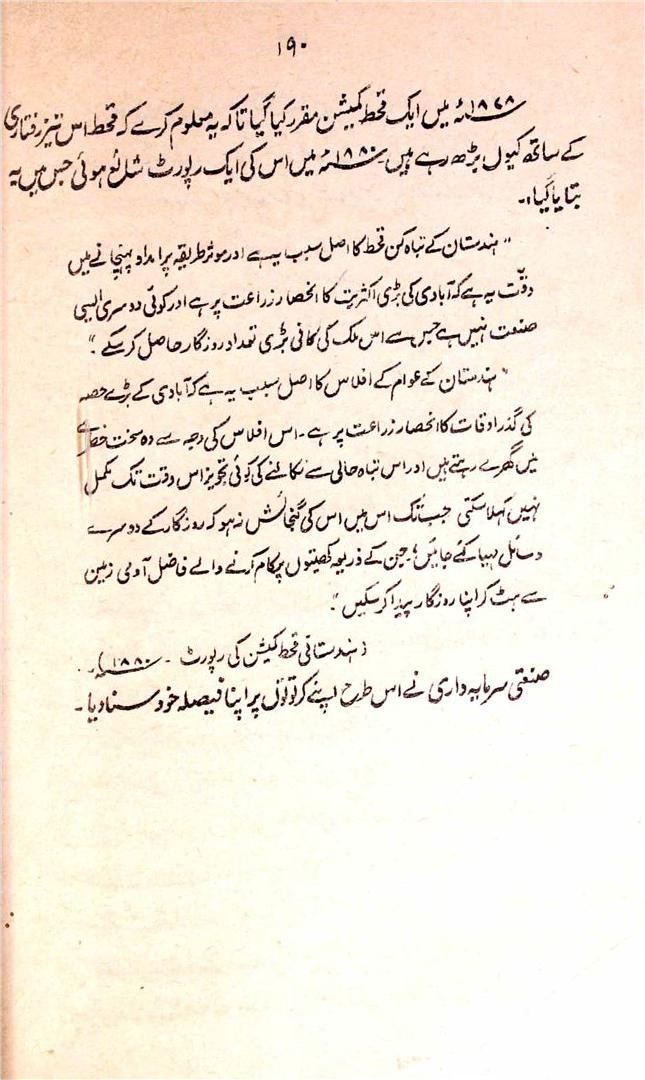 ۱۹۰
۱۸۷۸ء میں ایک قحط کمیشن مقرر کیا گیا تاکہ یہ معلوم کرے کہ قحط اس تیز رفتاری
کے ساتھ کیوں بڑھ رہے ہیں۔ ۱۸۸۰ء میں اس کی ایک رپورٹ شائع ہوئی جس میں یہ
بتایا گیا:۔
"ہندستان کے تباہ کن قحط کا اصل سبب یہ ہے اور موثر طریقہ پر امداد پہنچانے میں
دقت یہ ہے کہ آبادی کی بڑی اکثریت کا انحصار زراعت پر ہے اور کوئی دوسری ایسی
صنعت نہیں ہے جس سے اس ملک کی کافی بڑی تعداد روزگار حاصل کر سکے۔"
"ہندستان کے عوام کے افلاس کا اصل سبب یہ ہے کہ آبادی کے بڑے حصہ
کی گذر اوقات کا انحصار زراعت پر ہے۔ اس افلاس کی وجہ سے وہ سخت خطرے
میں گھرے رہتے ہیں اور اس تباہ حالی سے نکالنے کی کوئی تجویز اس وقت تک مکمل
نہیں کہلا سکتی جب تک اس میں اس کی گنجائش نہ ہو کہ روزگار کے دوسرے
وسائل مہیا کئے جائیں؛ جن کے ذریعہ کھیتوں پر کام کرنے والے فاضل آدمی زمین
سے ہٹ کر اپنا روزگار پیدا کر سکیں"۔
(ہندستانی قحط کمیشن کی رپورٹ۔ ۱۸۸۰ء)
صنعتی سرمایہ داری نے اس طرح اپنے کرتوتوں پر اپنا فیصلہ خود سنا دیا۔